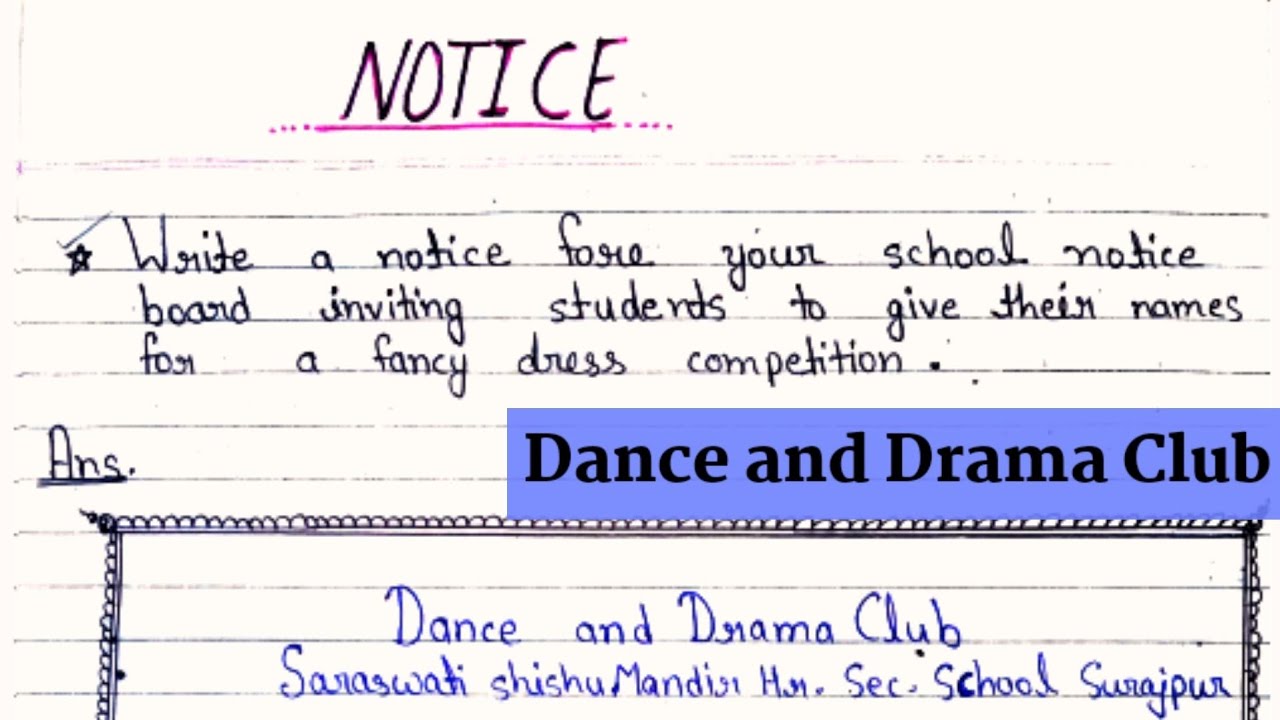 NOTICE
Write a notice fore your school notice
board inviting students to give their names
for a fancy dress competition.
Ans.
Dance and Drama Club
Dance and Drama Club
Saraswati shishu Mandir Hr. Sec. School Surajpur